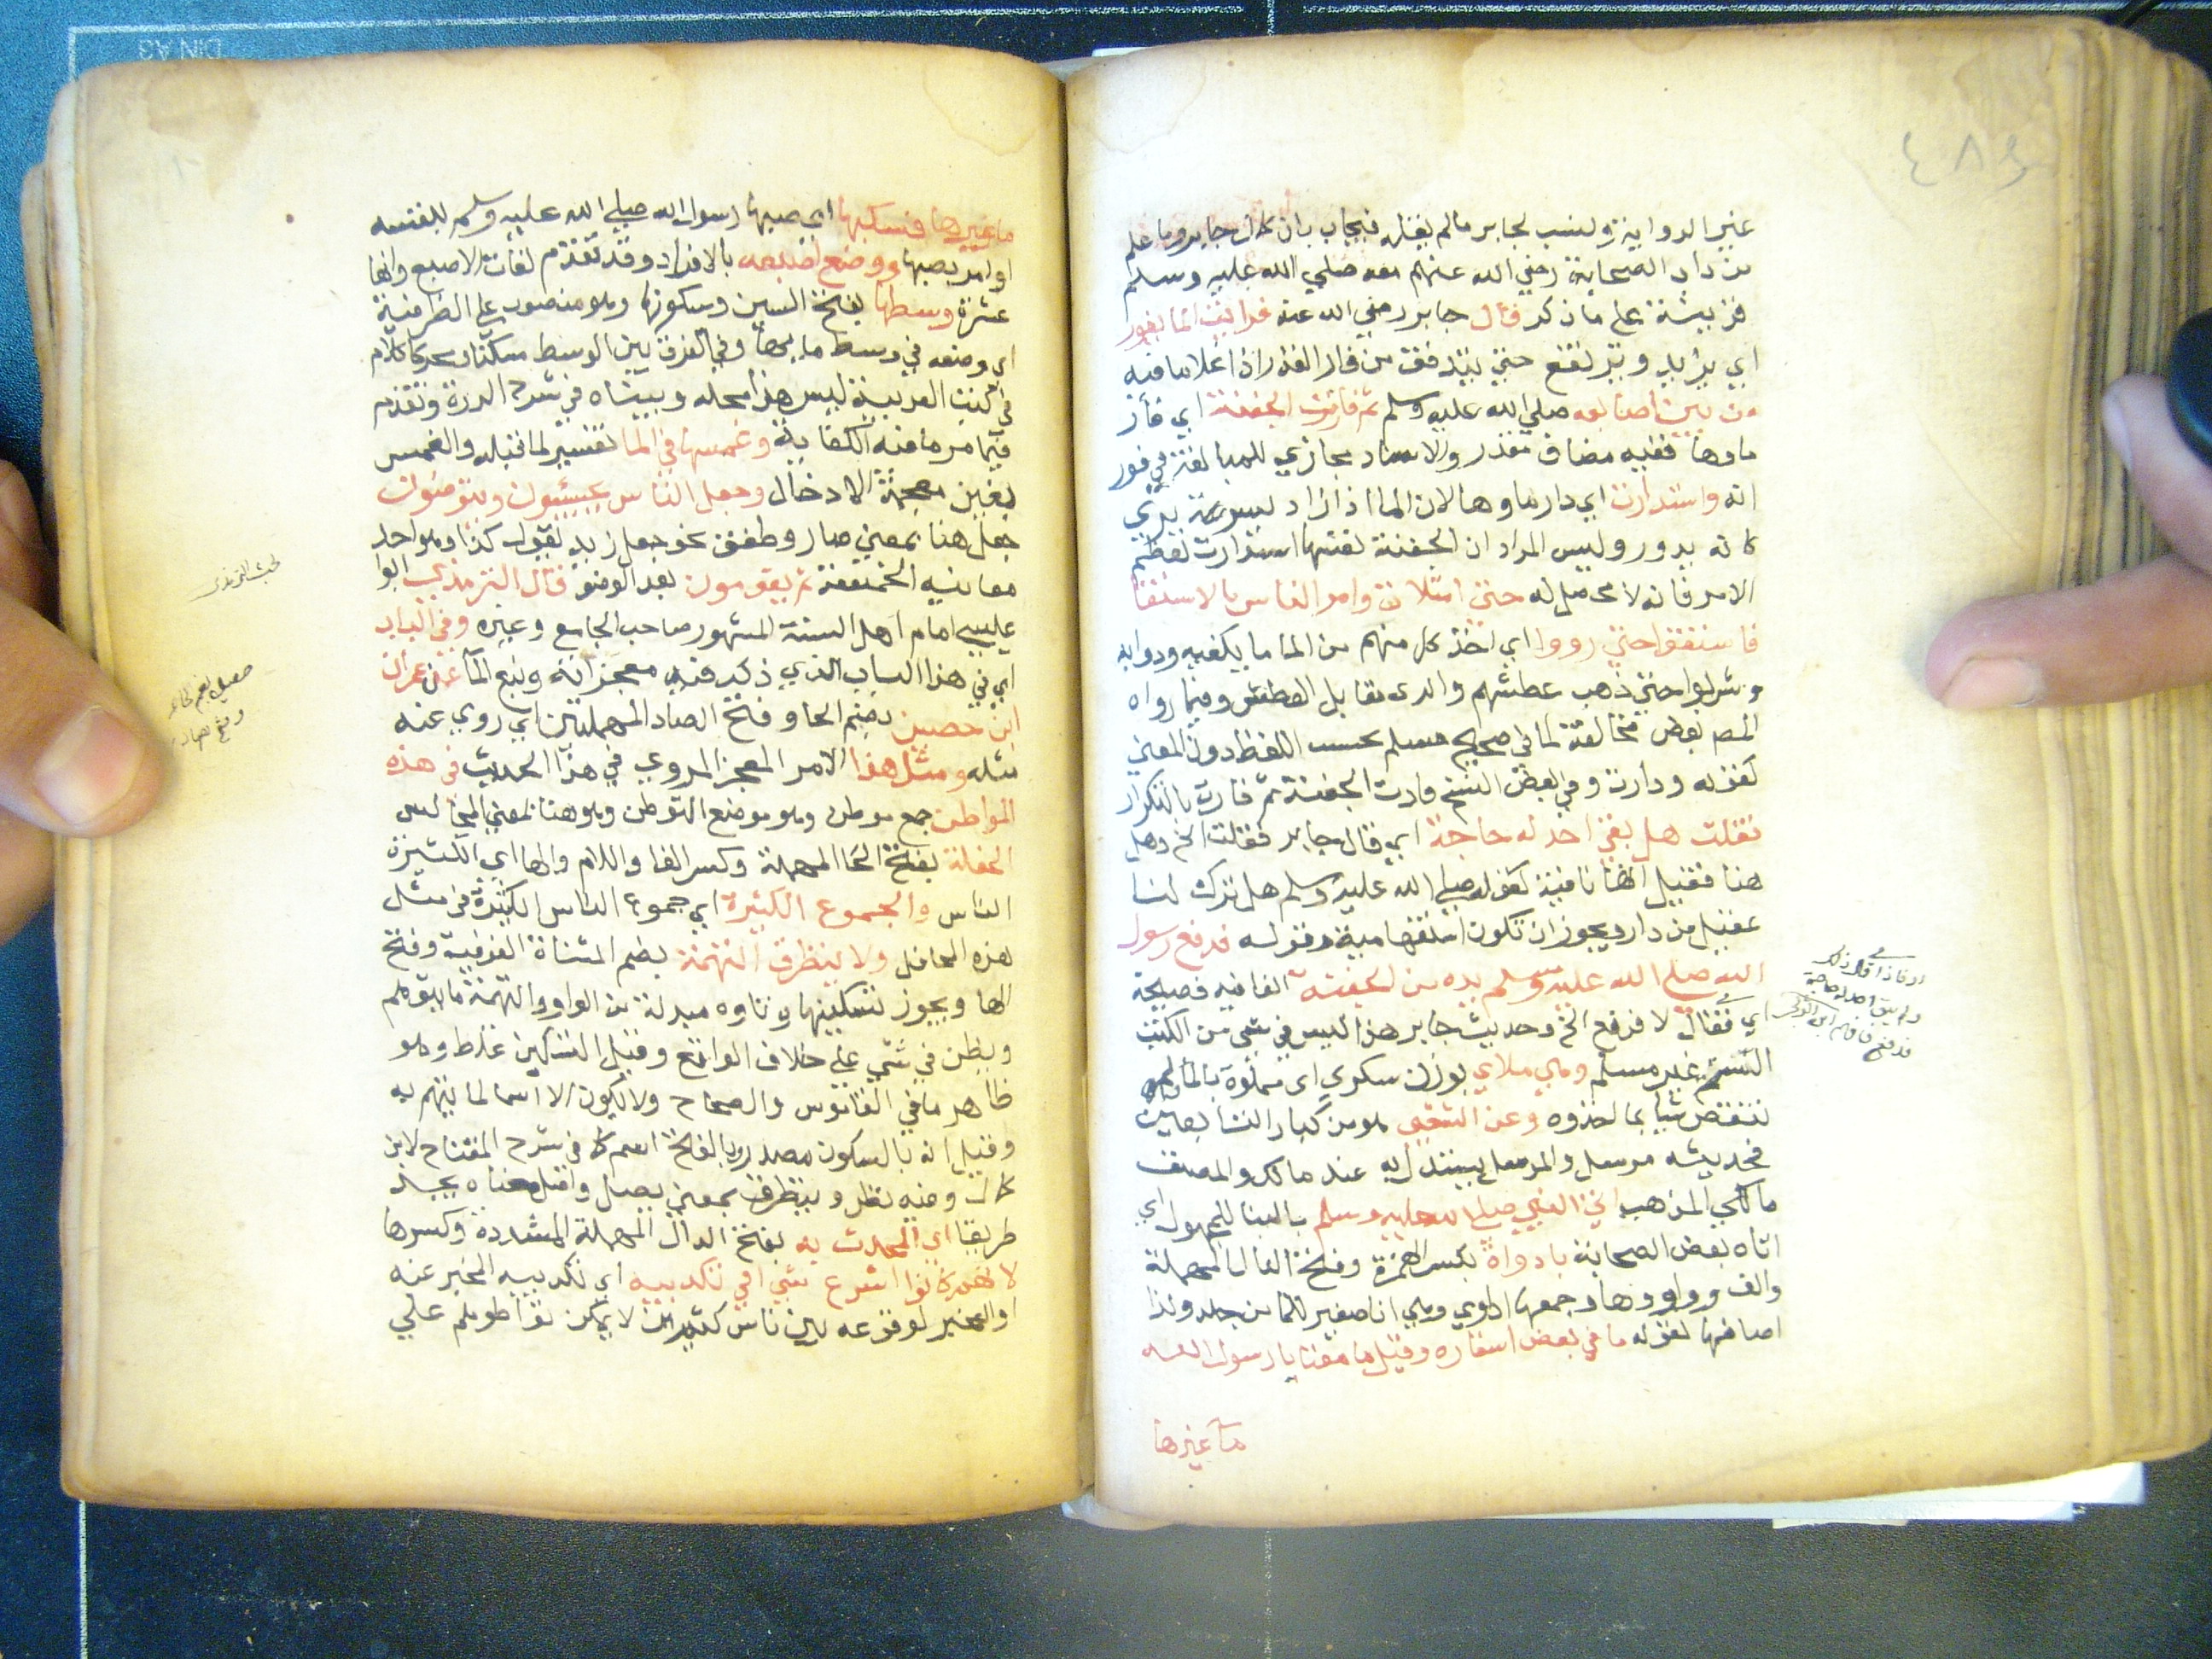 غير الرواية ونسب لجابر ما لم يقله فيجاب بان كلام جابر وما علم
من داب الصحابة رضي الله عنهم معه صلي الله عليه وسلم
قرينة علي ما ذكر قال جابر رضي الله عنه فرايت الما يفور
اي يزيد ويرتفع حتي يتدفق من فار القدر اذا غلا ما فيه
من بين اصابعه صلي الله عليه وسلم ثم فارت الجفنة اي فار
ماوها ففيه مضاف مقدر والاسناد مجازي للمبالغة في فور
انه واستدارت اي دار ماوها لان الما اذا زاد بسرعة يري
كانه يدور وليس المراد ان الجفنة نفسها استدارت لعظم
الامر فانه لا محصل له حتي امتلات وامر الناس بالاستقا
فاستقوا حتي رووا اي اخذ كل منهم من الما ما يكفيه ودوابه
وشربوا حتي ذهب عطشهم والري مقابل العطش وفيما رواه
المص بعض مخالفة لما في صحيح مسلم بحسب اللفظ دون المعني
كقوله ودارت وفي بعض النسخ فارت الجفنة ثم فارت بالتكرار
فقلت هل بقي احد له حاجة اي قال جابر فقلت الخ وهل
هنا فقيل انها نافية كقوله صلي الله عليه وسلم هل ترك لنا
عقيل من دار ويجوز ان تكون استفهامية وقوله فرفع رسول
الله صلي الله عليه وسلم يده من الجفنة الفا فيه فصيحة
اي فقال لا فرفع الخ وحديث جابر هذا ليس في شي من الكتب
الستة غير مسلم وهي ملاي بوزن سكري اي مملوة بالما لم
تنتقض شيا بما اخذوه وعن الشعبي هو من كبار التابعين
فحديثه مرسل والمرسل يستدل به عند مالك والمصنف
مالكي المذهب اتي النبي صلي الله عليه وسلم بالبنا للمجهول اي
اتاه بعض الصحابة باداوة بكسر الهمزة وفتح الدال المهملة
والف وواو وها وجمعها اداوي وهي انا صغير للما من جلد ولذا
اضافها لقوله ما في بعض اسفاره وقيل ما معنا يا رسول الله
ما غيرها
ما غيرها فسكبها اي صبها رسول الله صلي الله عليه وسلم بنفسه
او امر بصبها ووضع اصبعه بالافراد وقد تقدم لغات الاصبع وانها
عشرة وسطها بفتح السين وسكونها وهو منصوب علي الظرفية
اي وضعه في وسط مايها وفي الفرق بين الوسط مسكنا ومحركا كلام
في كتب العربية ليس هذا محله وبيناه في شرح الدرة وتقدم
فيما مر ما فيه الكفاية وغمسها في الما تفسير لما قبله والغمس
بغين معجمة الادخال وجعل الناس يجيئون ويتوضئون
جعل هنا بمعني صار وطفق نحو جعل زيد يقول كذا وهو احد
معانيه الخمسة ثم يقومون بعد الوضو قال الترمذي ابوا
عيسي امام اهل السنة المشهور صاحب الجامع وغيره وفي الباب
اي في هذا الباب الذي ذكر فيه معجزاته ونبع الما عن عمران
ابن حصين بضم الحا وفتح الصاد المهملتين اي روي عنه
مثله ومثل هذا الامر المعجز المروي في هذا الحديث في هذه
المواطن جمع موطن وهو موضع التوطن وهو هنا بمعني المجالس
الحفلة بفتح الحا المهملة وكسر الفا واللام والها اي الكثيرة
الناس والجموع الكثيرة اي جموع الناس الكثيرة في مثل
هذه المحافل ولا يتطرق التهمة بضم المثناة الفوقية وفتح
الها ويجوز تسكينها وتاوه مبدلة من الواو والتهمة ما يتوهم
ويظن في شي علي خلاف الواقع وقيل التسكين غلط وهو
ظاهر ما في القاموس والصحاح ولا يكون الا اسما لما يتهم به
وقيل انه بالسكون مصدر وبالفتح اسم كما في شرح المفتاح لابن
كمال وفيه نظر ويتطرق بمعني يصل واصل معناه يجد
طريقا الي المحدث به بفتح الدال المهملة المشددة وكسرها
لانهم كانوا اسرع شي الي تكذيبه اي تكذيبه المخبر عنه
او المخبر لوقوعه بين ناس كثيرين لا يمكن تواطوهم علي